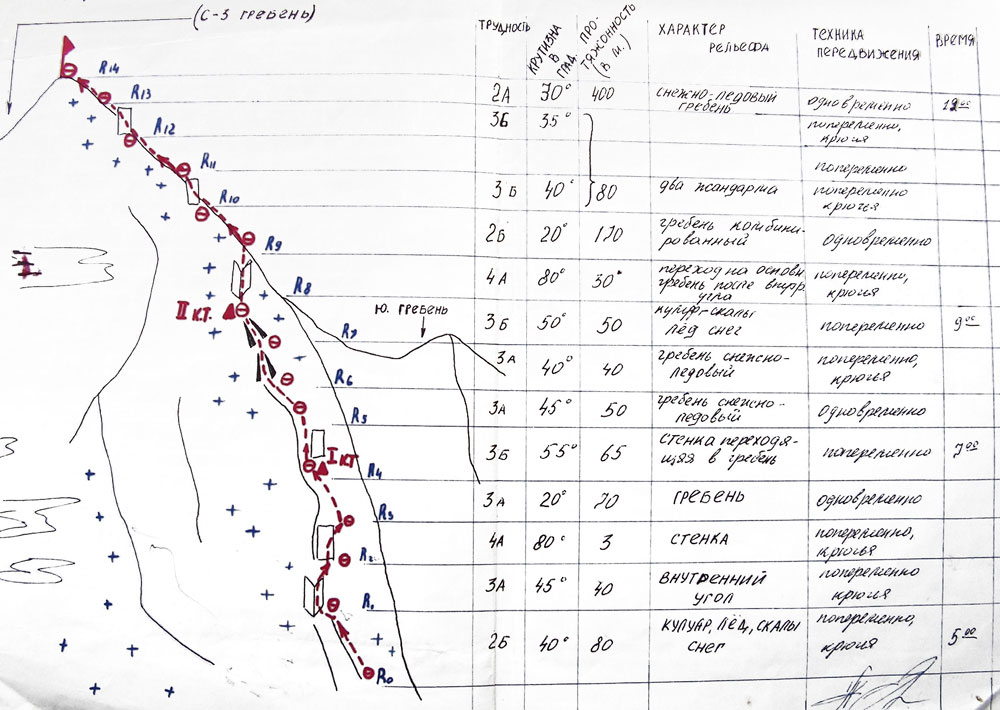 (С-З ГРЕБЕНЬ)
Ю. ГРЕБЕНЬ
R14
R13
R12
R11
R10
R9
R8
R7
R6
R5
R4
R3
R2
R1
R0
II К.Т.
I КТ
ТРУДНОСТЬ КРУТИЗНА В ГРАД. ПРОТЯЖОННОСТЬ (В М.) ХАРАКТЕР РЕЛЬЕФА ТЕХНИКА ПЕРЕДВИЖЕНИЯ ВРЕМЯ
2А 30° 400 СНЕЖНО-ЛЕДОВЫЙ ГРЕБЕНЬ ОДНОВРЕМЕННО 12 00
3Б 35° ПОПЕРЕМЕННО, КРЮЧЬЯ
ПОПЕРЕМЕННО
3Б 40° 80 ДВА ЖАНДАРМА ПОПЕРЕМЕННО КРЮЧЬЯ
2Б 20° 170 ГРЕБЕНЬ КОМБИНИ-
РОВАННЫЙ ОДНОВРЕМЕННО
4А 80° 30 ПЕРЕХОД НА ОСНОВН.
ГРЕБЕНЬ ПОСЛЕ ВНУТР.
УГЛА ПОПЕРЕМЕННО, КРЮЧЬЯ
3Б 50° 50 СКАЛЫ
ЛЁД СНЕГ ПОПЕРЕМЕННО 9 00
3А 40° 40 ГРЕБЕНЬ СНЕЖНО-
ЛЕДОВЫЙ ПОПЕРЕМЕННО, КРЮЧЬЯ
3А 45° 50 ГРЕБЕНЬ СНЕЖНО-
ЛЕДОВЫЙ ОДНОВРЕМЕННО
3Б 55° 65 СТЕНКА ПЕРЕХОДЯ-
ЩАЯ В ГРЕБЕНЬ ПОПЕРЕМЕННО 7 00
3А 20° 70 ГРЕБЕНЬ ОДНОВРЕМЕННО
4А 80° 3 СТЕНКА ПОПЕРЕМЕННО, КРЮЧЬЯ
3А 45° 40 ВНУТРЕННИЙ
УГОЛ ПОПЕРЕМЕННО КРЮЧЬЯ
2Б 40° 80 КУЛУАР, ЛЁД, СКАЛЫ
СНЕГ ПОПЕРЕМЕННО, КРЮЧЬЯ 5 00